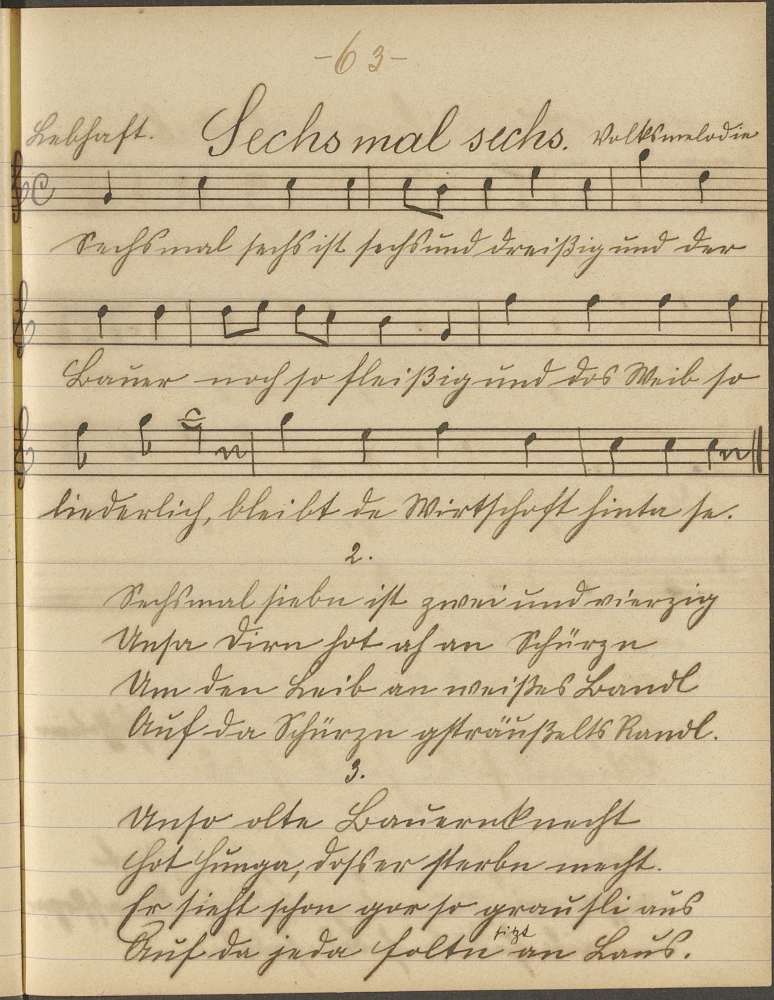 -63-
Lebhaft. Sechs mal sechs. Volksmelodie
Sechsmal sechs ist sechsund dreißig und der
Bauer noch so fleißig und das Weib so
liederlich, bleibt de Wirtschaft hinta se.
2.
Sechsmal siebn ist zwei und vierzig
Unsa Dirn hot ah an Schürzn
Um den Leib an weißes Bandl
Auf da Schürzn gsträußelts Randl.
3.
Unso olte Bauernknecht
Hot Hunga, doss er sterbn mecht.
Er sieht schon gor so grausli aus
Auf da jeda foltn sitzt an Laus.